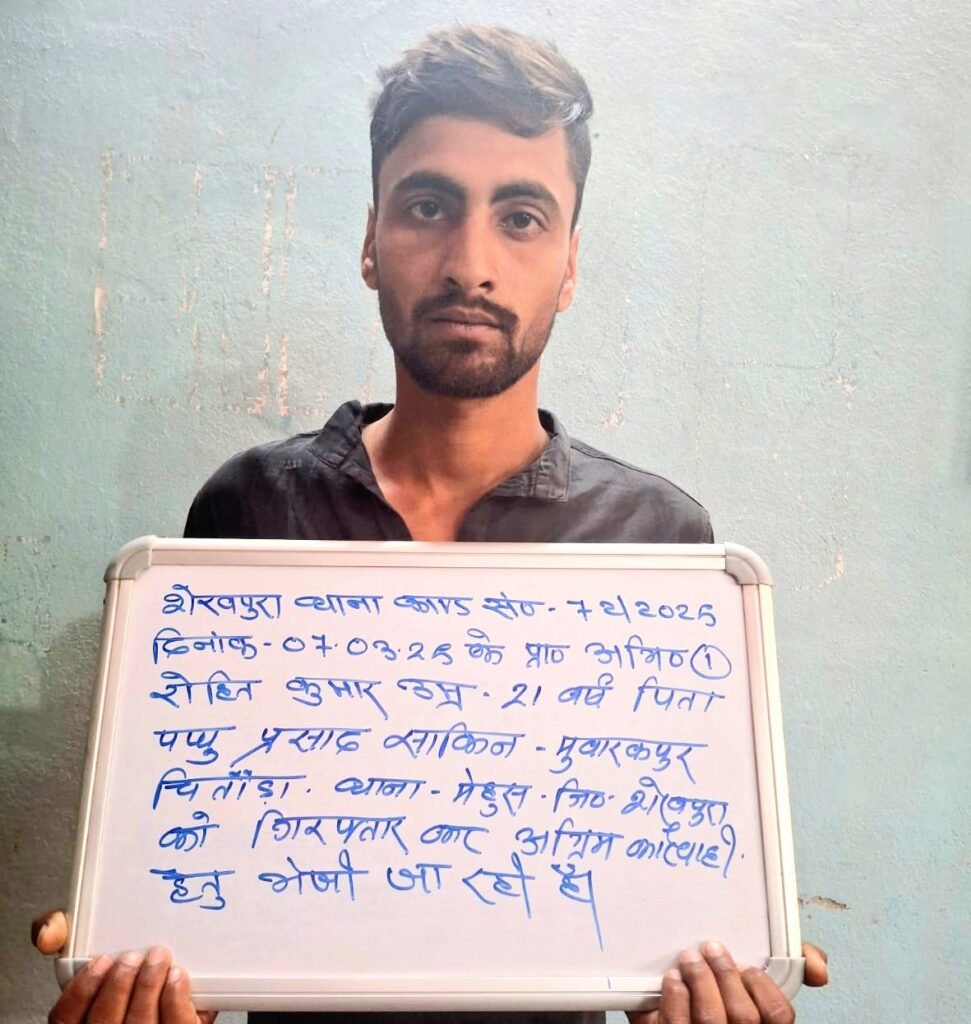 शेखपुरा थाना काण्ड सं०- 72/2026
दिनांक- 07.03.26 के प्रा० अभि० ①
रोहित कुमार उम्र- 21 वर्ष पिता
पप्पु प्रसाद साकिन - मुबारकपुर
चितौड़ा. थाना - मेहुस. जि०- शेखपुरा
को गिरफ्तार कर अग्रिम कार्यवाही.
हेतु भेजी जा रही है।